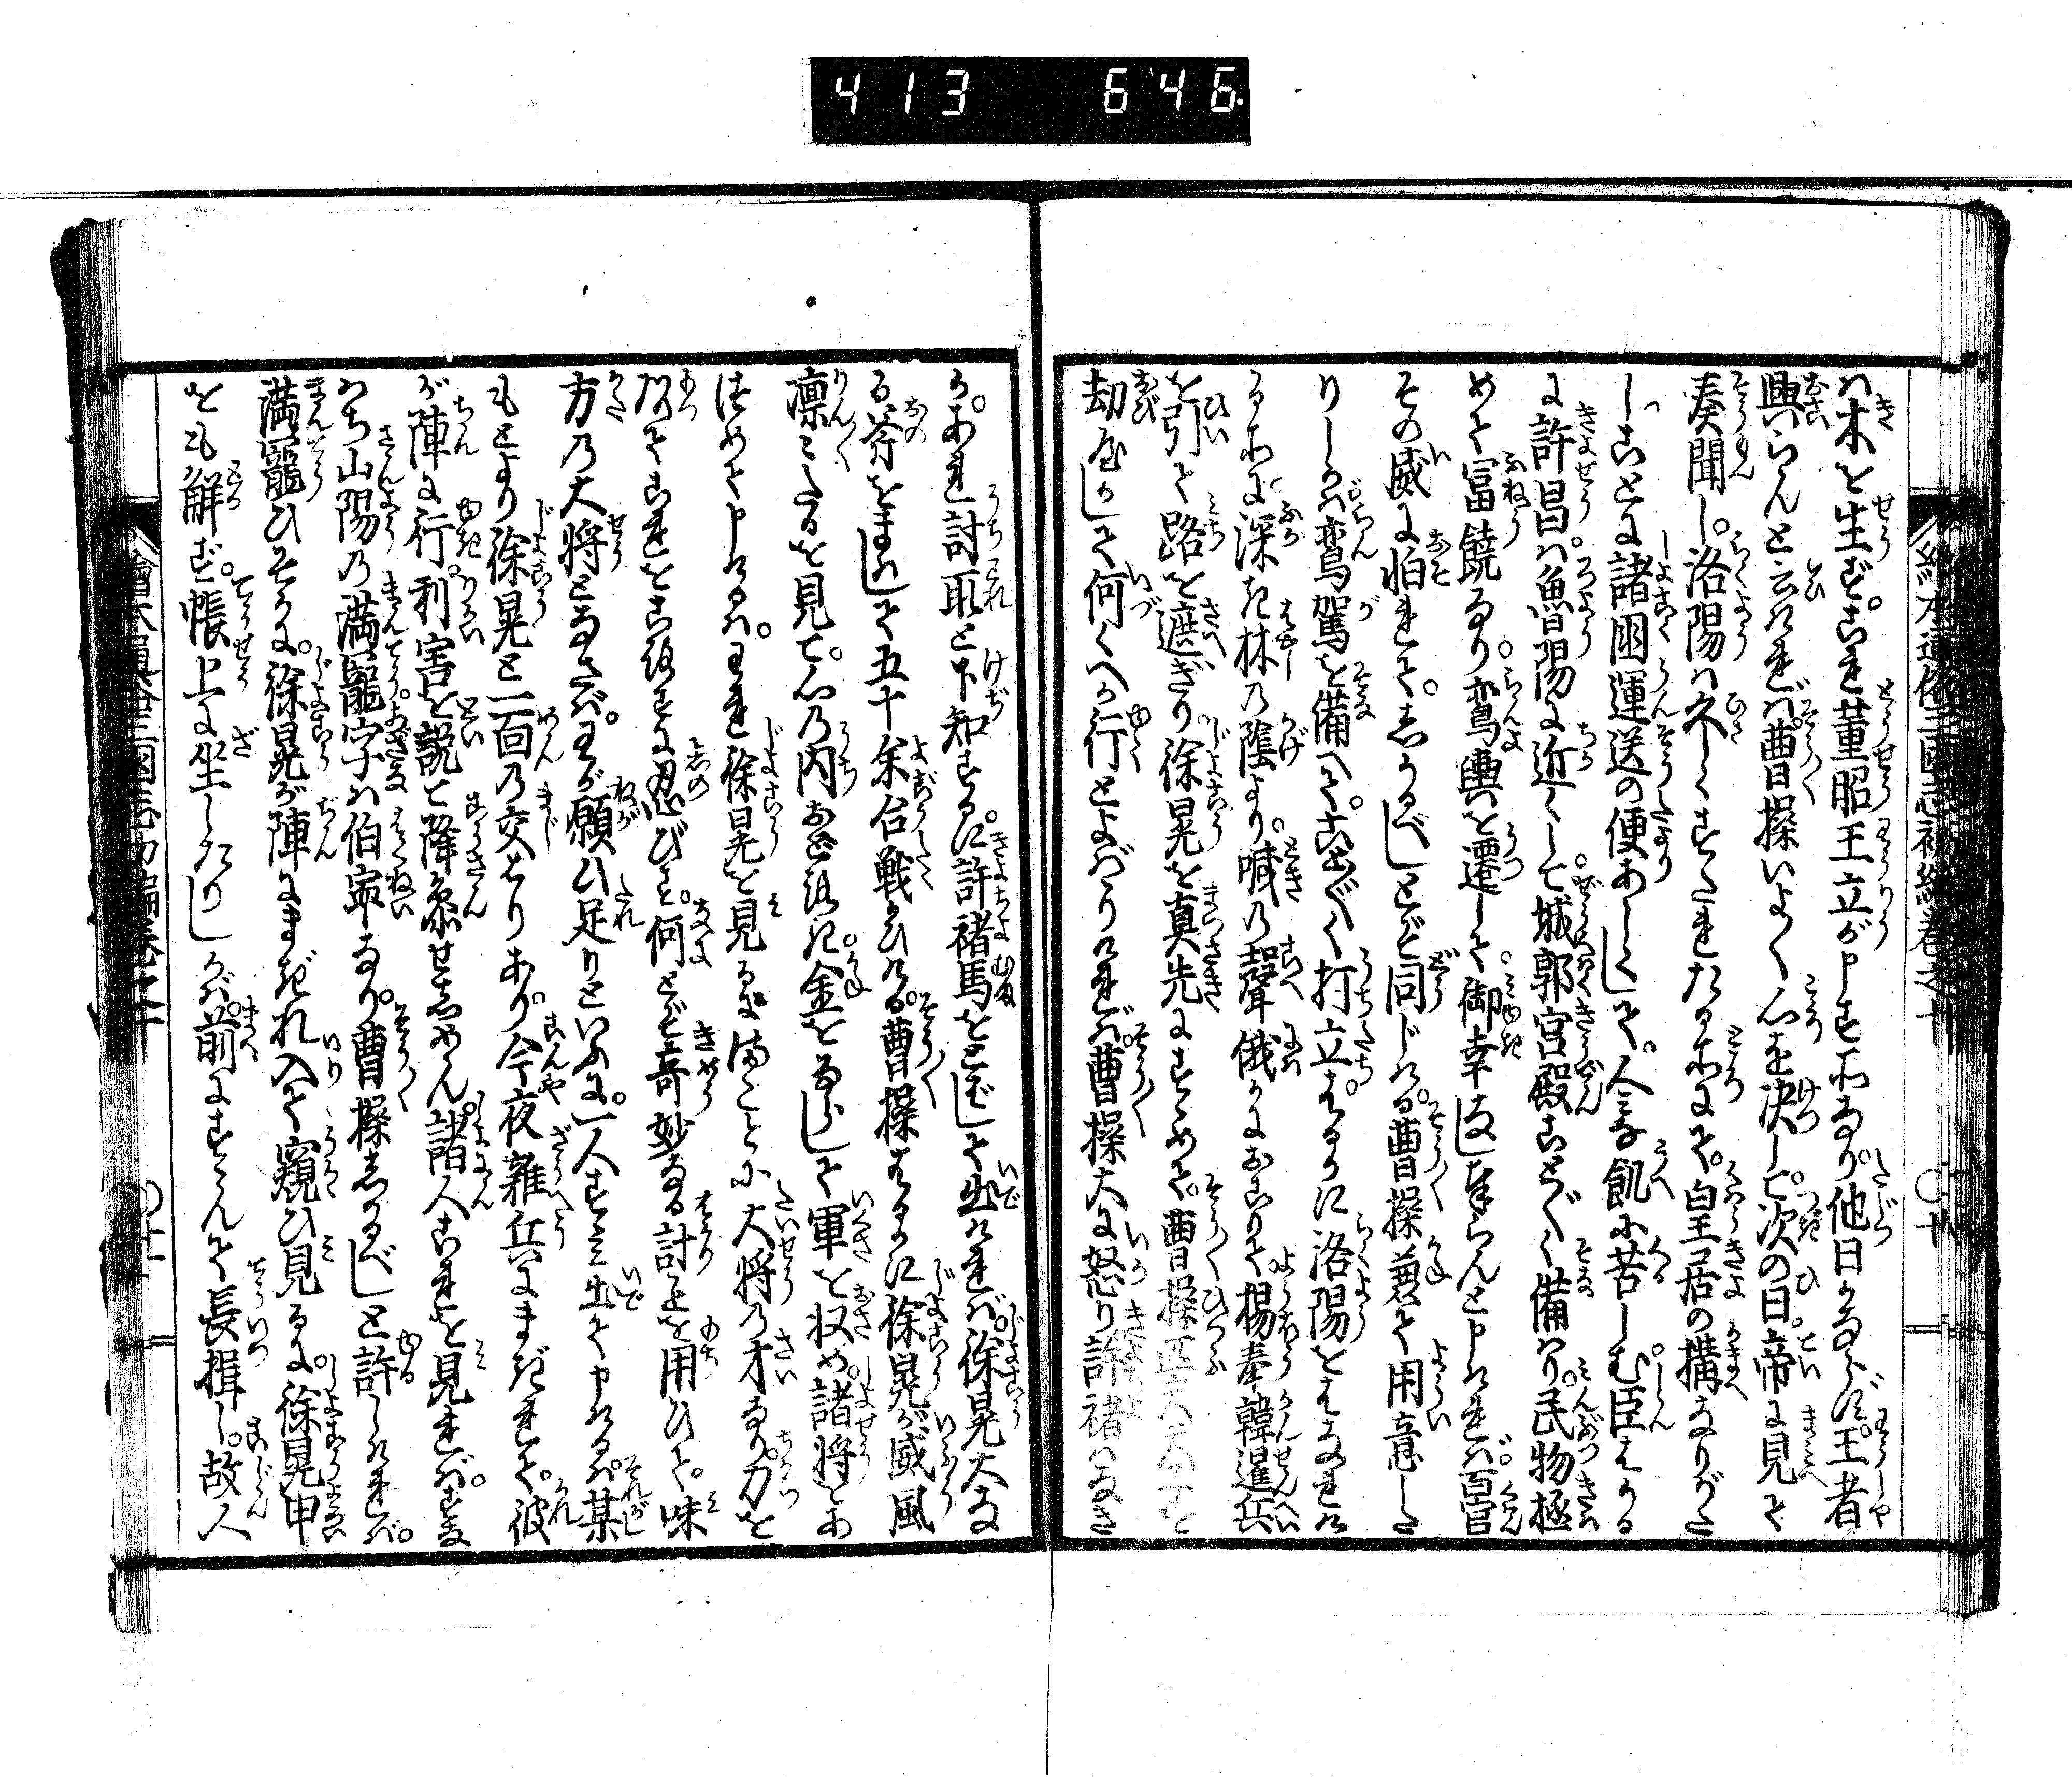 413 646
繪本通俗三國志初編卷之十
ハ木を生ず。これ董昭王立が申す所なり。他日かならず。王者
興らんと云ければ。曹操いよ〱心を決して次の日。帝に見えて
奏聞し。洛陽ハ久しくすたれたる所にて。皇居の構なりがた
し。ことに諸国運送の便あしくして。人みな飢に苦しむ。臣はかる
に許昌ハ。魯陽に近くして。城郭宮殿こと〲く備ハり。民物極
めて富饒なり。鸞輿を遷して。御幸なし奉らんと申ければ。百官
その威に怕れて。しかるべしとぞ同じける。曹操兼て用意した
りしかバ。鸞駕を備へて。こと〲く打立。はるかに洛陽をはなれけ
る所に。深き林の蔭より。喊の聲俄かにおこりて。楊奉韓暹兵
を引て路を遮ぎり。徐晃を真先にすゝめて。曹操
劫かして何くへか行とよばゝりければ。曹操大に怒り許褚ハなき
○十
か。あれ討取と下知するに。許褚馬をとばして出ければ。徐晃大な
る斧をまはして五十余合戦かひける。曹操はるかに徐晃が威風
凛々たるを見て。心の内おどろき。金をならして軍を収め。諸将をあ
つめて申けるハ。われ徐晃を見るにまことに大将の才なり。力を
以てこれをころすに忍びず。何とぞ奇妙なる計を用ひて。味
方の大将となさバ。わが願ひ足りといふに。一人すゝみ出て申けるハ。某
もとより徐晃と一面の交はりあり。今夜雑兵にまぎれて。彼
が陣に行。利害を説て降参せしめん。諸人これを見れバ。すな
ハち山陽の満寵字ハ伯寧なり。曹操しかるべしと許しければ。
満寵ひそかに。徐晃が陣にまぎれ入て窺ひ見るに。徐晃甲
をも解ず。帳上に坐したりしかバ。前にすゝんで長揖し。故人
○十一